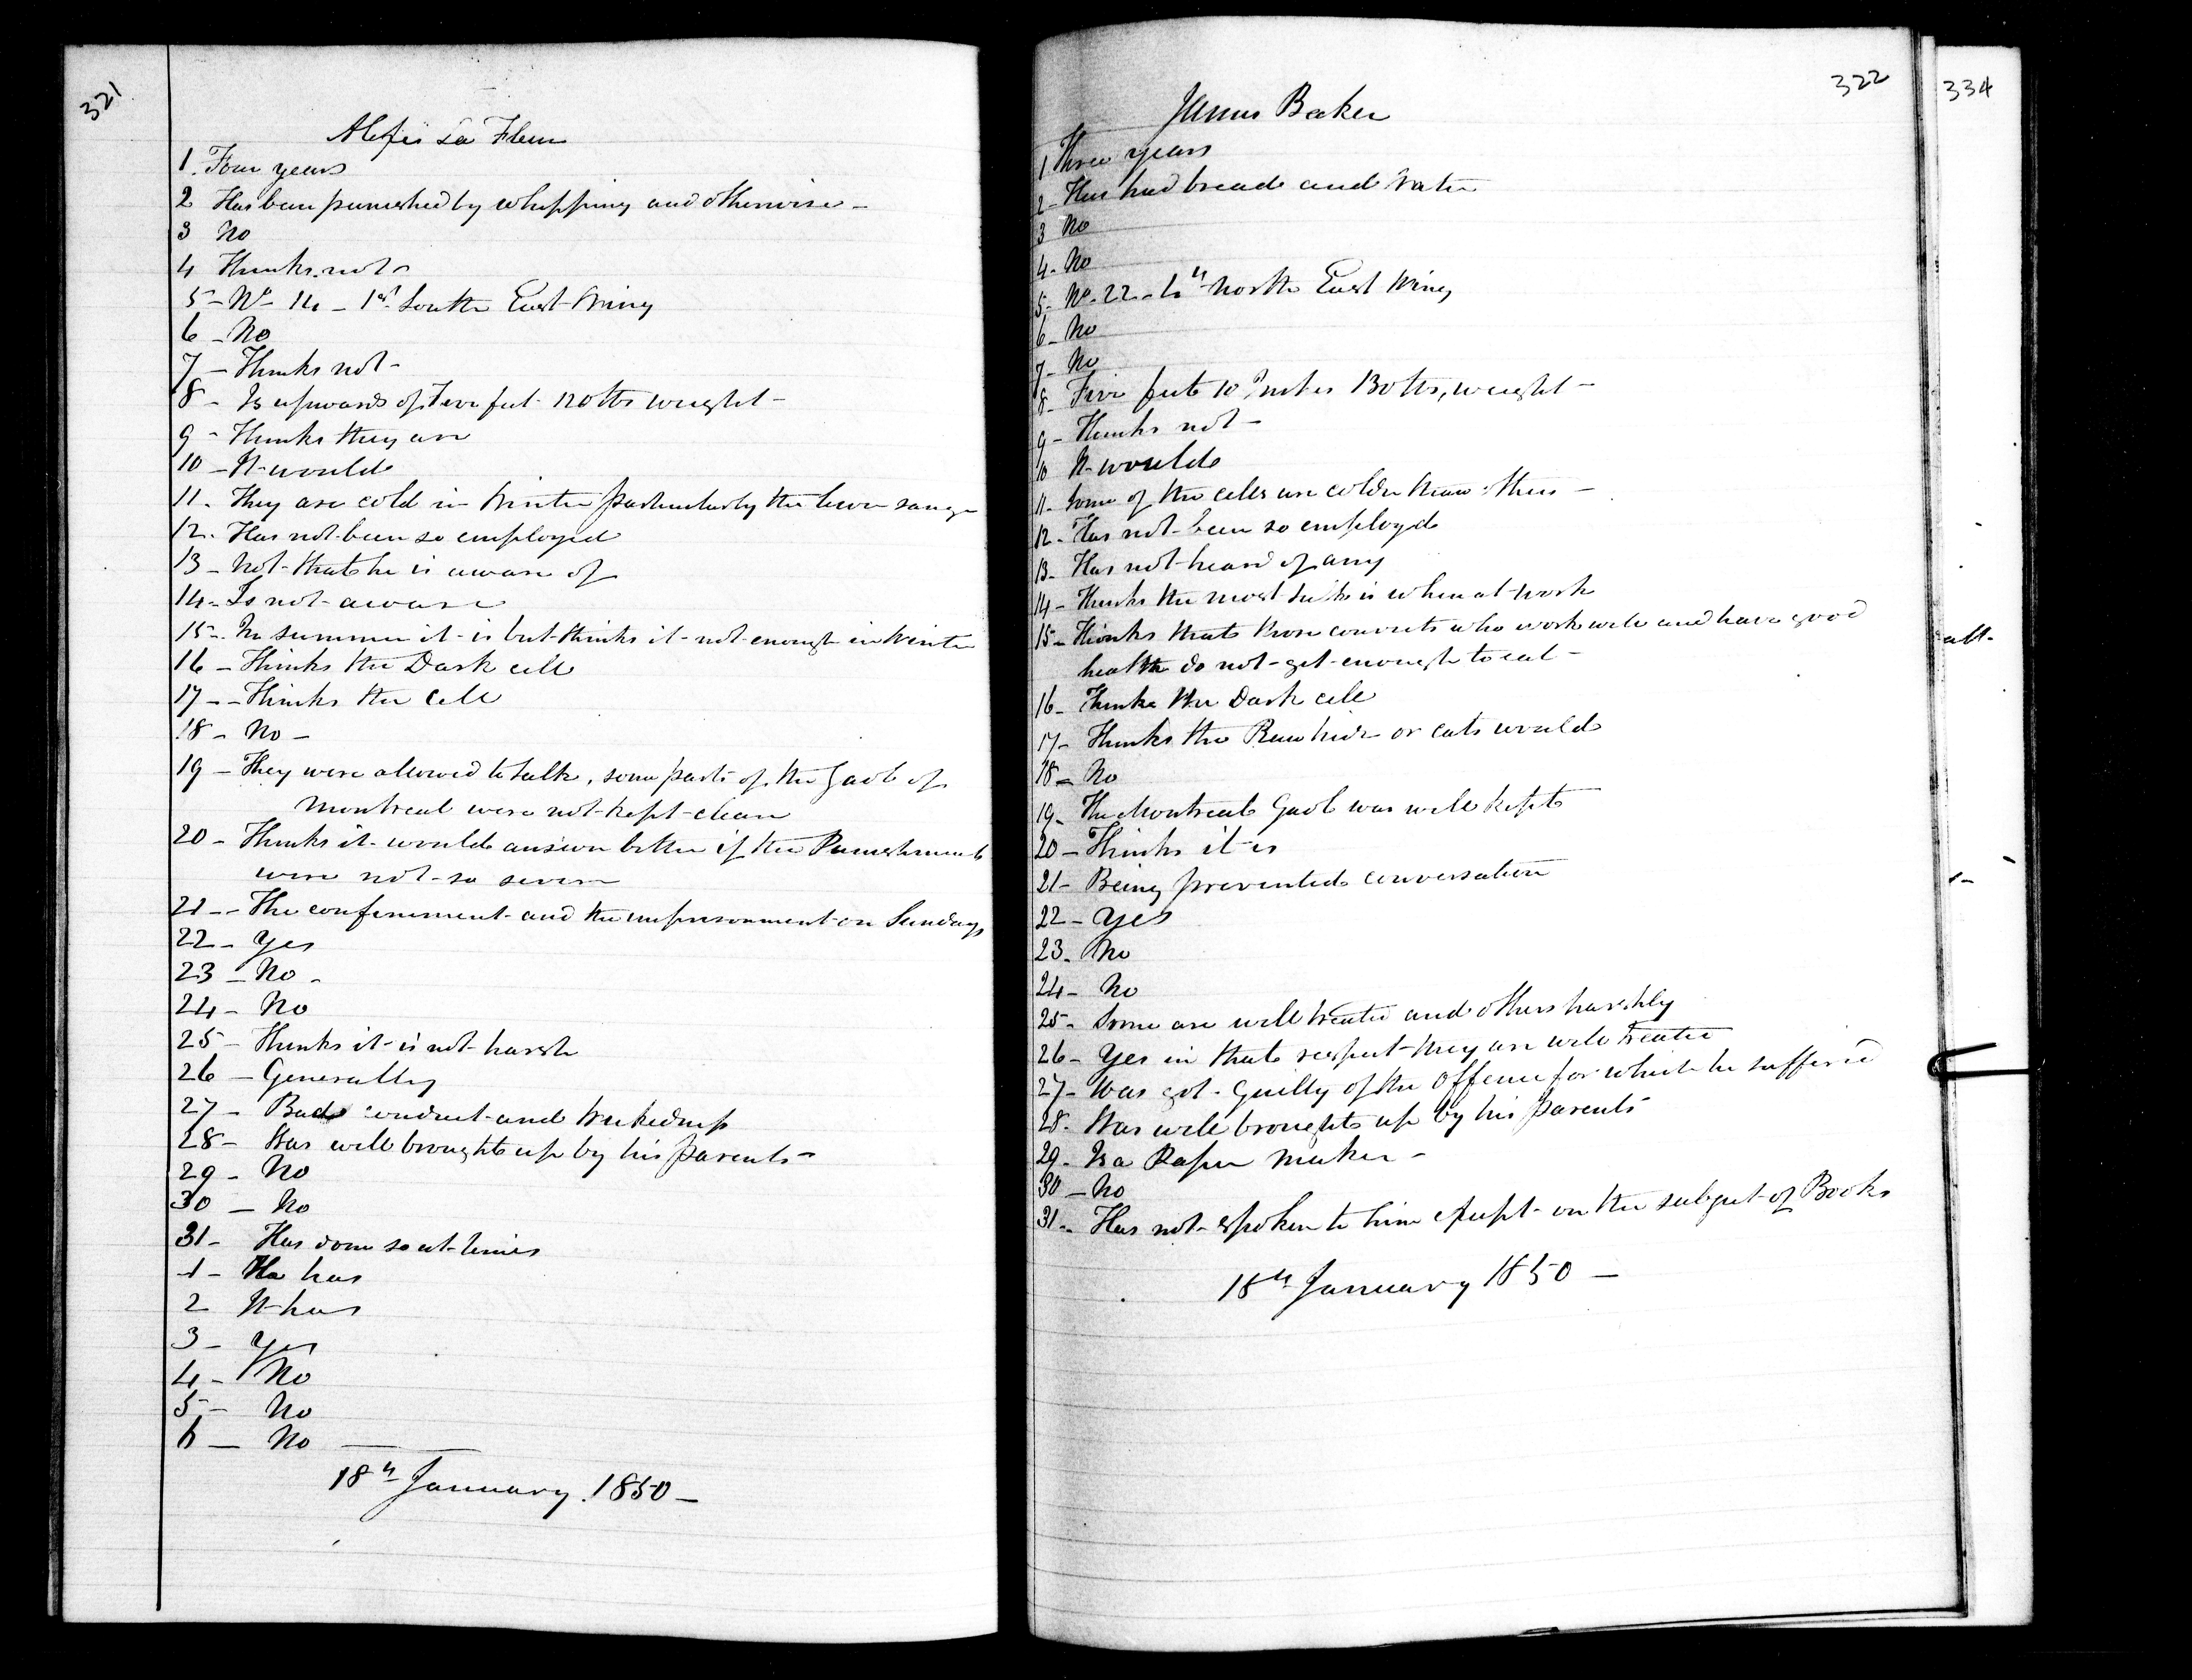 321
Alexis La Fleur
1. Four years
2 Has been punished by whipping and otherwise -
3 No
4 Thinks not -
5 - No 14 - 1st South East Wing
6 - No
7 - Thinks not -
8 - Is upwards of five feet 120 lbs weight -
9 - Thinks they are
10 - It would
11. They are cold in Winter particularly the lower range
12. Has not been so employed
13 - Not that he is aware of
14 - Is not aware
15 - In summer it is but thinks it not enough in Winter
16 - Thinks the Dark cell
17 - - Thinks the Cell
18 - No -
19 - They were allowed to talk, some parts of the Gaol of
Montreal were not kept clean
20 - Thinks it would answer better if the Punishments
were not so severe
21 - - The confinement and the imprisonment on Sundays
22 - Yes
23 - No -
24 - No
25 - Thinks it is not harsh
26 - Generally
27 - Bad conduct and wickedness
28 - Was well brought up by his parents -
29 - No
30 - No
31 - Has done so at times
1 - He has
2 It has
3 - Yes
4 - No
5 - No
6 - No
18th January 1850 -
322
James Baker
1 Three years
2 - Has had bread and Water
3 No
4 - No
5 - No. 22 - 4th North East Wing
6 - No
7 - No
8 - Five feet 10 Inches 130 lbs, weight -
9 - Thinks not -
10 It would
11 - Some of the cells are colder than others -
12 - Has not been so employed
13 - Has not heard of any
14 - Thinks the most talk is when at work
15 - Thinks that those convicts who work well and have good
health do not get enough to eat -
16 - Thinks the Dark cell
17 - Thinks the Raw hide or cats would
18 - No
19 - The Montreal Gaol was well kept
20 - Thinks it is
21 - Being prevented conversation
22 - Yes
23 - No
24 - No
25 - Some are well treated and others harshly
26 - Yes in that respect they are well treated
27 - Was not guilty of the Offence for which he suffered
28 - Was well brought up by his parents
29 - Is a Paper maker -
30 - No
31 - Has not spoken to him except on the subject of Books
18th January 1850 -
334